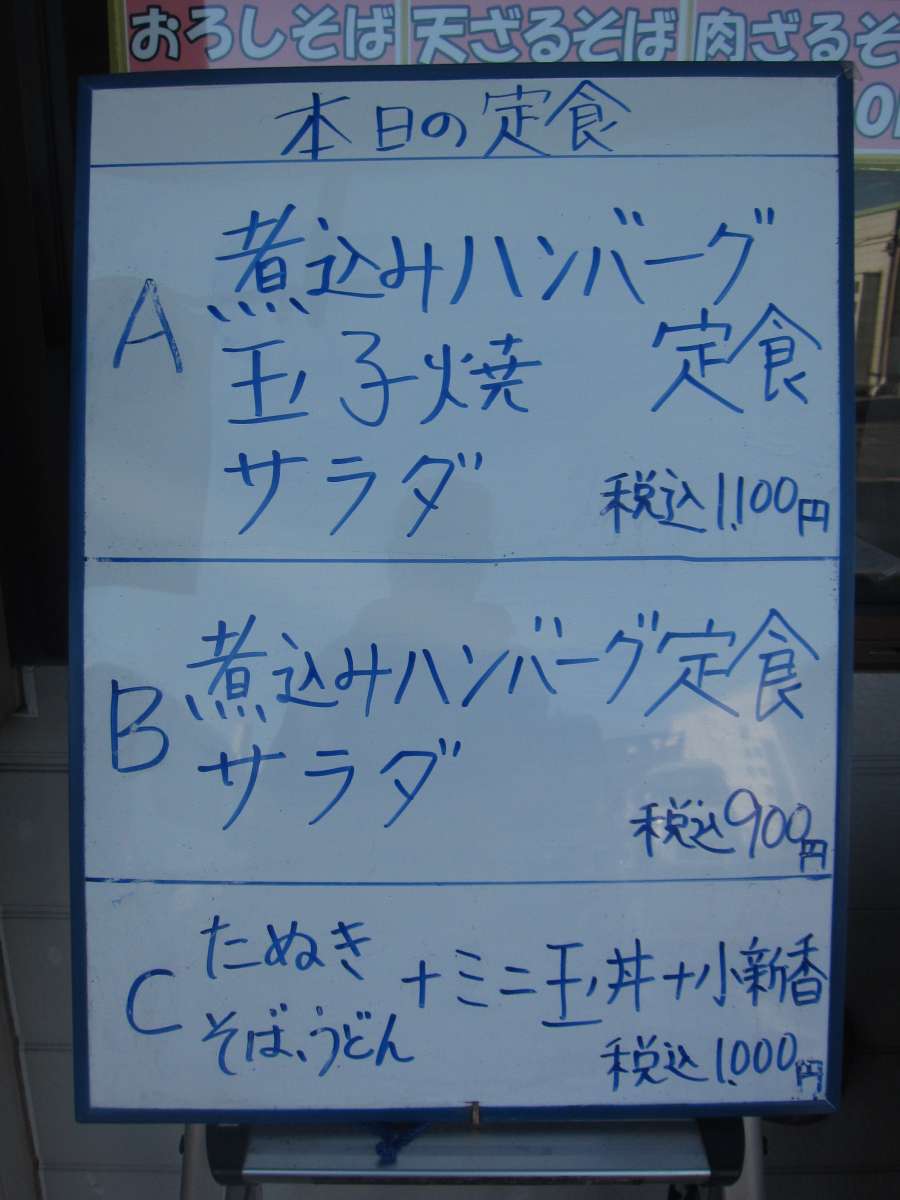 おろしそば 天ざるそば 肉ざるそ
本日の定食
A 煮込みハンバーグ
玉子焼 定食
サラダ 税込1,100円
B 煮込みハンバーグ定食
サラダ
税込900円
C たぬき
そば、うどん +ミニ玉丼+小新香
税込1,000円